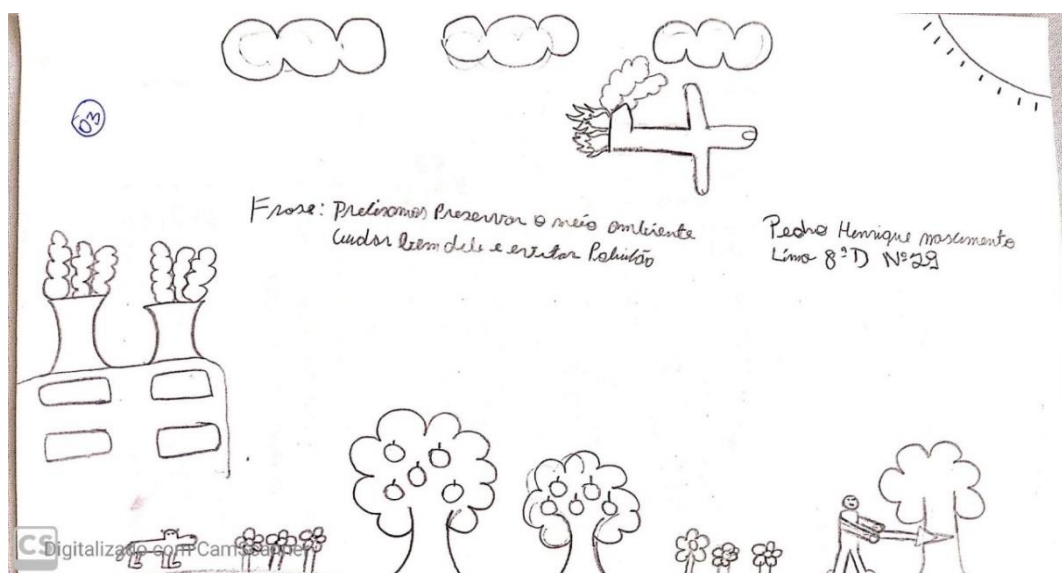 03
Frase: Precisamos Preservar o meio ambiente
Cuidar bem dele e evitar Poluição
Pedro Henrique nascimento
Lima 8ºD Nº29
CS Digitalizado com CamScanner